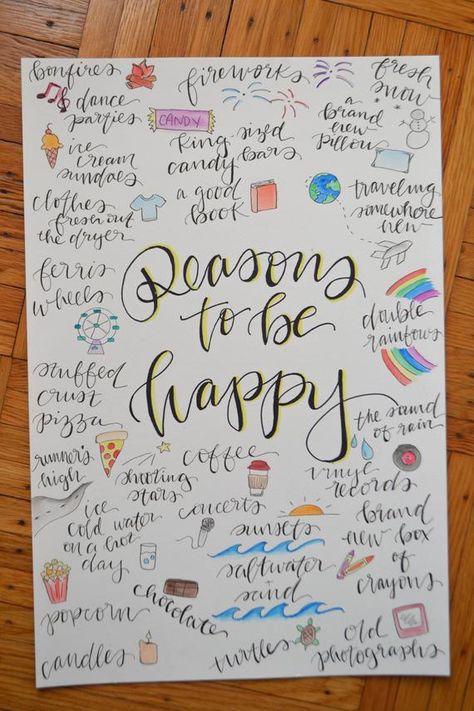 bonfires
fireworks
fresh
snow
dance
parties
CANDY
king sized
candy bars
a
brand
new
pillow
ice
cream
sundaes
clothes
fresh out
the dryer
a good
book
traveling
somewhere
new
ferris
wheels
Reasons
to be
happy
double
rainbows
stuffed
crust
pizza
the sound
of rain
runner's
high
shooting
stars
coffee
vinyl
records
ice
cold water
on a hot
day
concerts
sunsets
saltwater
+
sand
brand
new box
of
crayons
popcorn
chocolate
candles
turtles
old
photographs